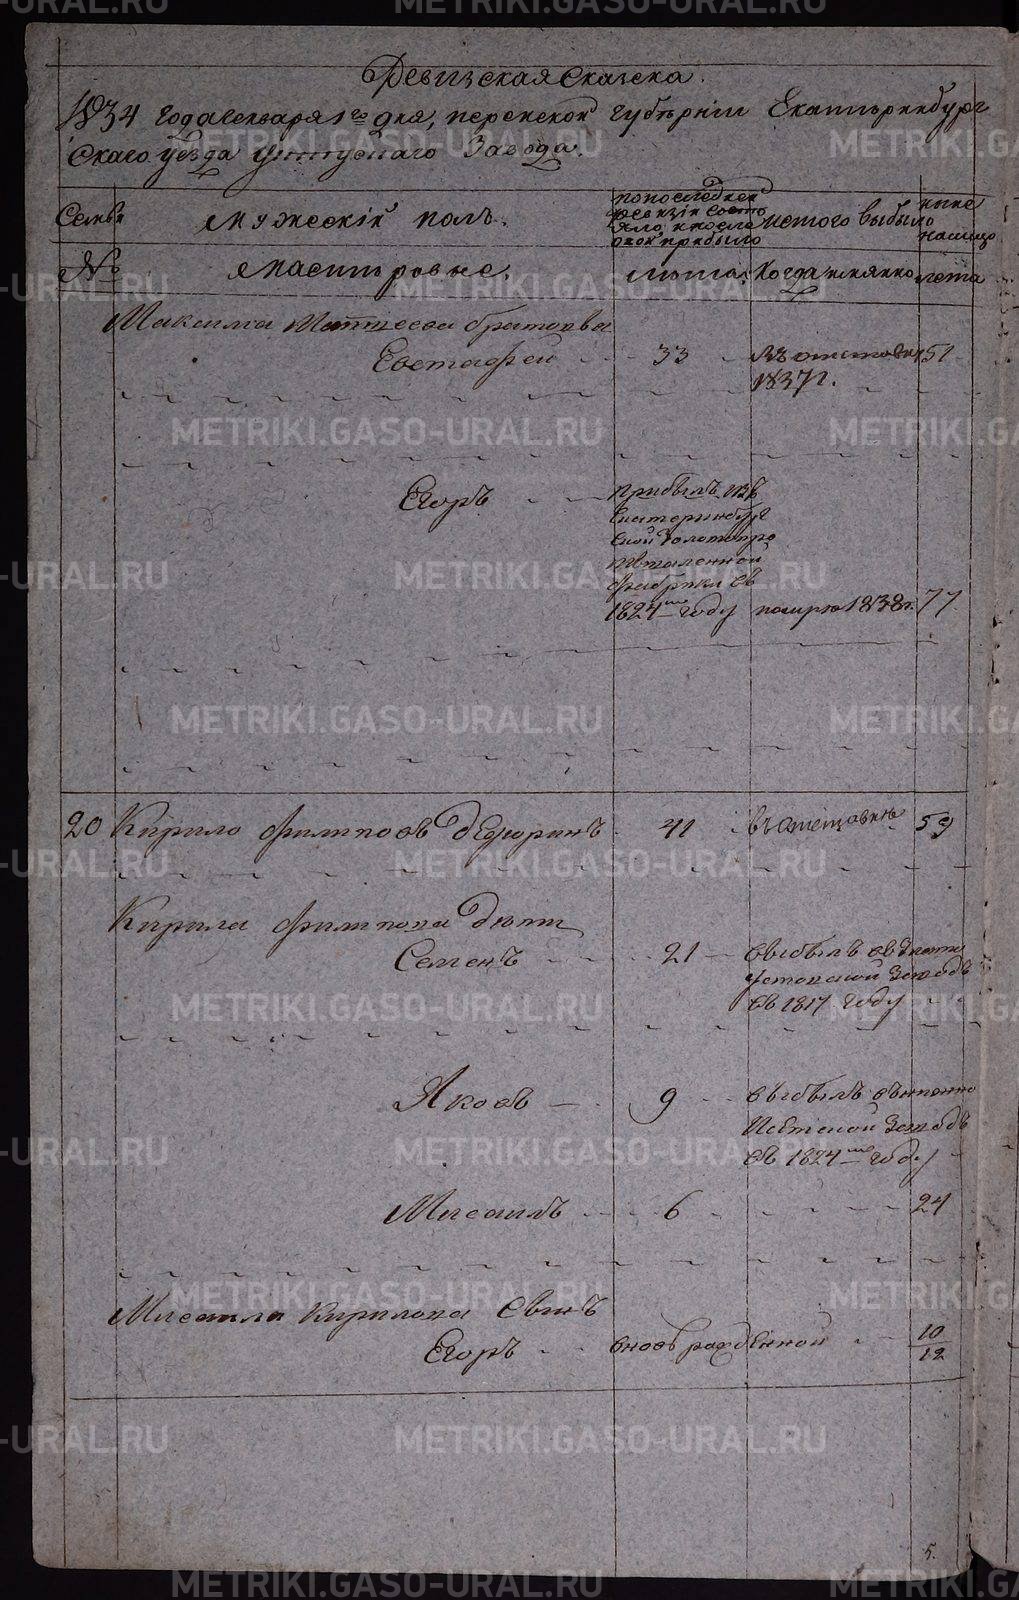 Ревизская сказка.
1834 года генваря 1го дня, пермской губернии Екатеринбург
скаго уезда Уктускаго Завода.
Семьи
мужескiй полъ.
по последней
ревизiи состо
яло и после
оной прибыло
изтого выбыло
ныне
налицо
№
мастировые.
лета
когда имянно
лета
Максима Матвеева братовья
Евстафей 33 въ отставке 51
1837г.
Егоръ прибылъ изъ
Екатеринбург
ской золотопро
мышленной
фабрики въ
1824мъ году помре 1838г. 77
20 Кирило Филиповъ Дедюринъ 41 въ отставке 59
Кирила Филипова дети
Семенъ 21 выбылъ въ
завод
въ 1817 году
Яковъ 9 выбылъ въ
завод
въ 1824мъ году
Мисаилъ 6 24
Мисаила Кирилова сынъ
Егоръ вновь рожденной 10/12
5.
METRIKI.GASO-URAL.RU